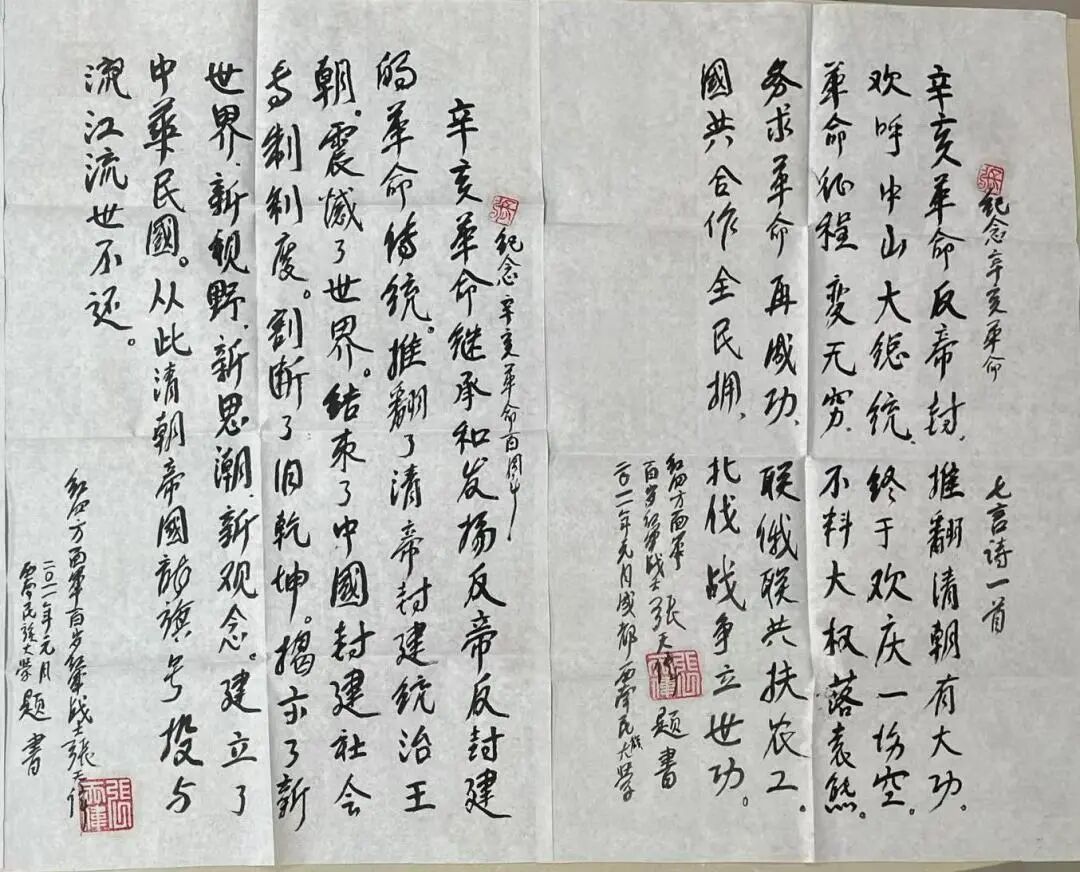 纪念辛亥革命 七言诗一首
辛亥革命反帝封、推翻清朝有大功。
欢呼中山大总统、终于欢庆一场空。
革命征程变无穷、不料大权落袁熊。
务求革命再成功、联俄联共扶农工。
國共合作全民拥、北伐战争立世功。
红四方面军
百岁红军战士张天伟 题書
二〇一一年元月成都西南民族大学
纪念辛亥革命百周年
辛亥革命继承和发扬反帝反封建
的革命传统。推翻了清帝封建统治王
朝。震憾了世界。结束了中國封建社会
专制制度。割断了旧乾坤。揭示了新
世界、新视野、新思潮、新观念。建立了
中華民國。从此清朝帝國龍旗号投与
流江流世不还。
红四方面军百岁红军战士張天伟
二〇一一年元月
西南民族大学 题書